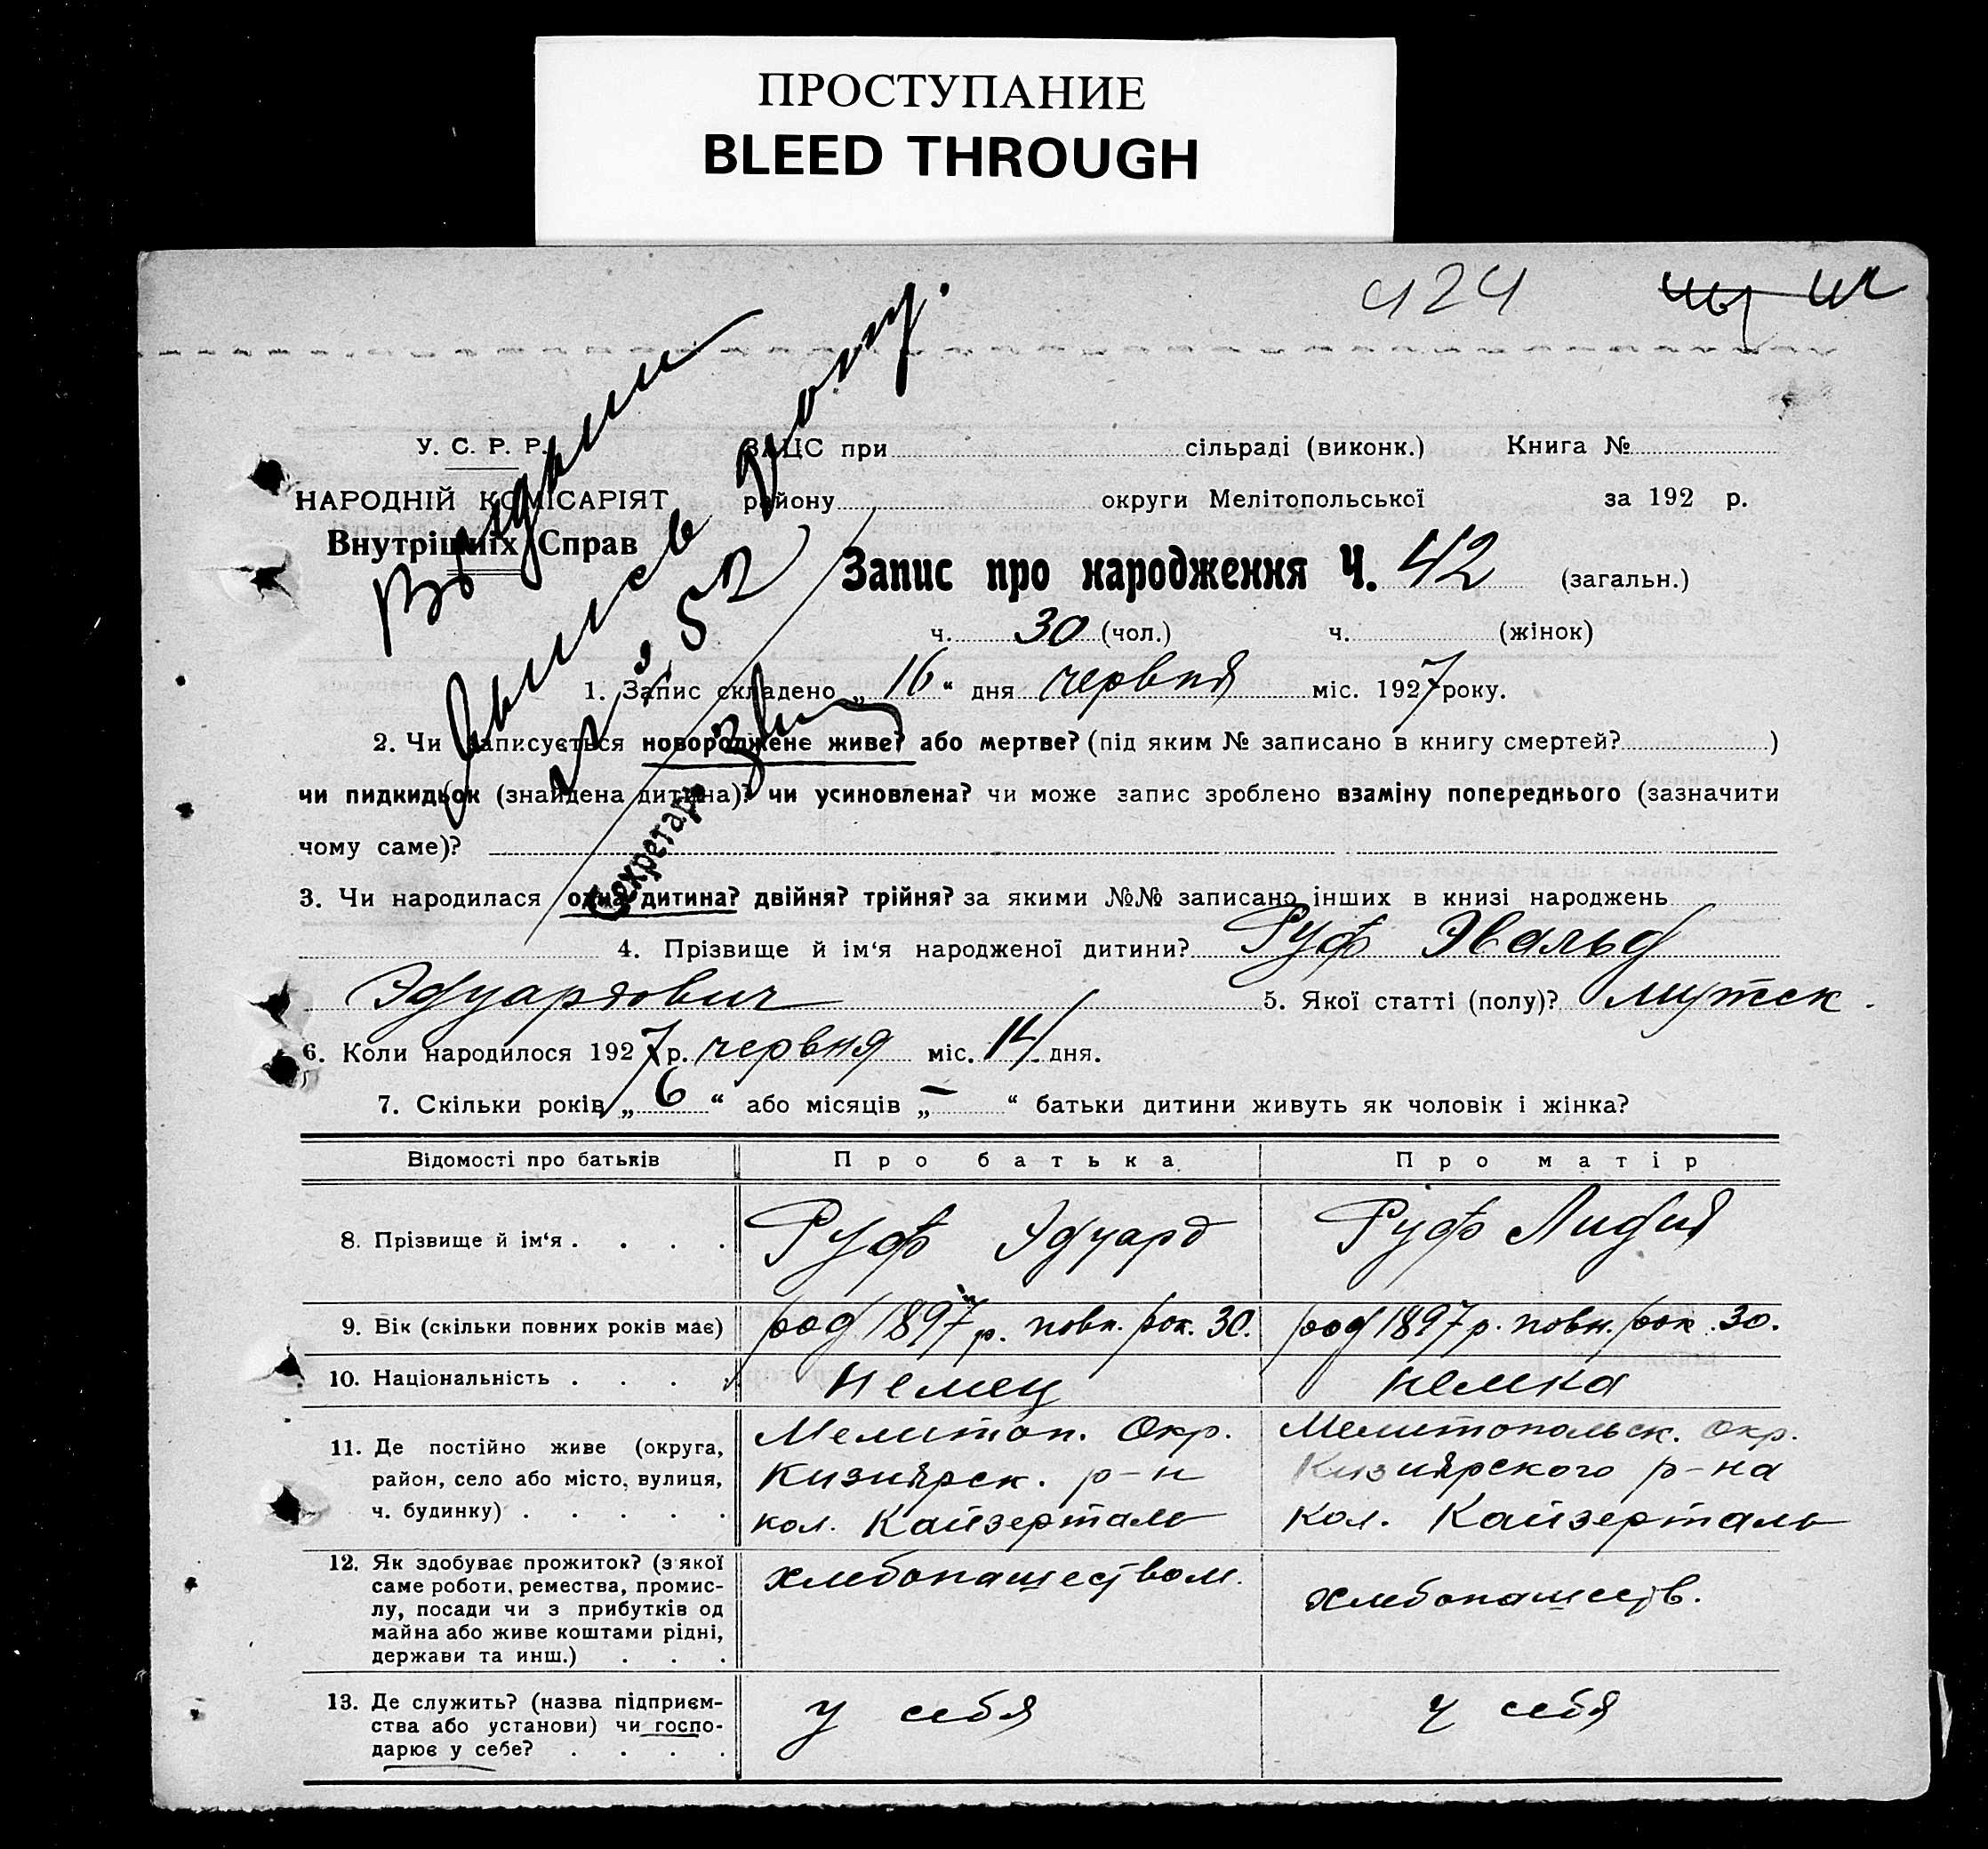 ПРОСТУПАНИЕ
BLEED THROUGH
424
У. С. Р. Р.
НАРОДНІЙ КОМІСАРІЯТ
Внутрішніх Справ
ЗАЦС при сільраді (виконк.) Книга №
району округи Мелітопольської за 192 р.
Запис про народження Ч. 42 (загальн.)
ч. 30 (чол.) ч. (жінок)
Секретар
1. Запис складено „ 16 “ дня червня міс. 1927 року.
2. Чи записується новороджене живе? або мертве? (під яким № записано в книгу смертей? )
чи пидкидьок (знайдена дитина)? чи усиновлена? чи може запис зроблено взаміну попереднього (зазначити
чому саме)?
3. Чи народилася одна дитина? двійня? трійня? за якими №№ записано інших в книзі народжень
4. Прізвище й ім‘я народженої дитини? Руф Эвальд
Эдуардович 5. Якої статті (полу)? мужеск.
6. Коли народилося 1927 р. червня міс. 14 дня.
7. Скільки років „ 6 “ або місяців „ – “ батьки дитини живуть як чоловік і жінка?
Відомості про батьків Про батька Про матір
8. Прізвище й ім‘я . . . . Руф Эдуард Руф Лидия
9. Вік (скільки повних років має) род 1897 р. повн. рок. 30. род 1897 р. повн. рок. 30.
10. Національність . . . . немец немка
11. Де постійно живе (округа, район, село або місто, вулиця, ч. будинку) . . . . .
Мелитоп. Окр.
Кизиярск. р-н
кол. Кайзерталь
Мелитопольск. окр.
Кизиярского р-на
Кол. Кайзерталь
12. Як здобуває прожиток? (з якої
саме роботи, ремества, промис-
лу, посади чи з прибутків од
майна або живе коштами рідні,
держави та инш.) . . .
хлебопашеством.
хлебопашеств.
13. Де служить? (назва підприєм-
ства або установи) чи госпо-
дарює у себе? . . . .
у себя
у себя